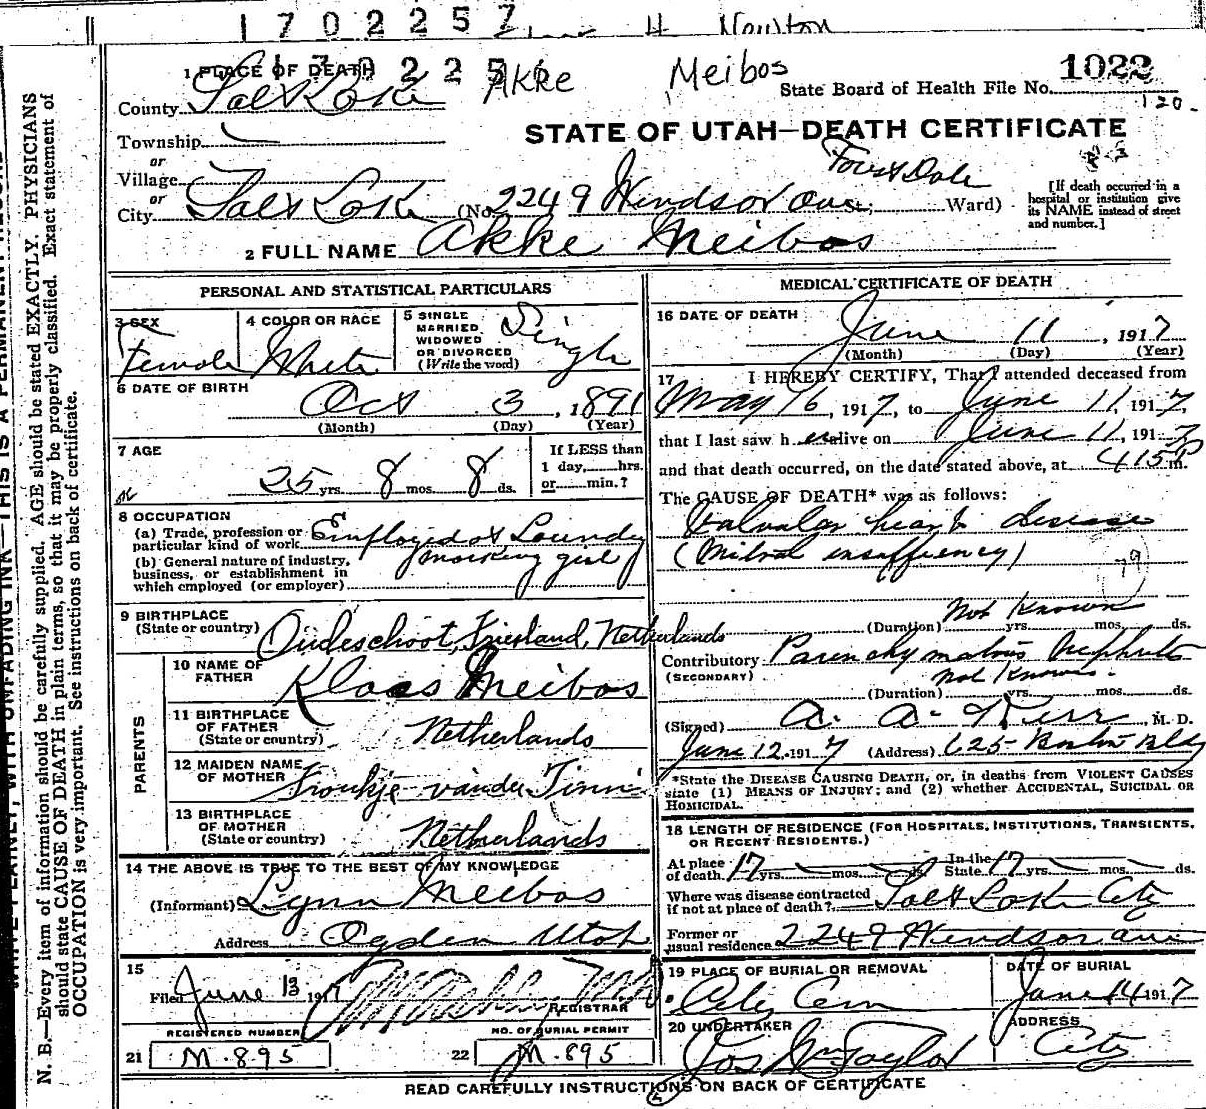 1702257 H. Newton
1702256
Akke Meibos
1 PLACE OF DEATH
County Salt Lake
State Board of Health File No. 1022
120
Township
or
Village
or
City Salt Lake (No. 2249 Windsor Ave St; Ward)
Forest Dale
STATE OF UTAH—DEATH CERTIFICATE
[If death occurred in a
hospital or institution give
its NAME instead of street
and number.]
2 FULL NAME Akke Meibos
PERSONAL AND STATISTICAL PARTICULARS
3 SEX
Female
4 COLOR OR RACE
White
5 SINGLE
MARRIED
WIDOWED
OR DIVORCED
(Write the word)
Single
6 DATE OF BIRTH
Oct 3, 1891
(Month) (Day) (Year)
7 AGE
25 yrs. 8 mos. 8 ds.
If LESS than
1 day, hrs.
or min.?
8 OCCUPATION
(a) Trade, profession or
particular kind of work Employed at Laundry
(b) General nature of industry,
business, or establishment in
which employed (or employer)
9 BIRTHPLACE
(State or country) Oudeschoot, Friesland, Netherlands
PARENTS
10 NAME OF
FATHER Klaas Meibos
11 BIRTHPLACE
OF FATHER
(State or country) Netherlands
12 MAIDEN NAME
OF MOTHER Froukje vander
13 BIRTHPLACE
OF MOTHER
(State or country) Netherlands
14 THE ABOVE IS TRUE TO THE BEST OF MY KNOWLEDGE
(Informant) Lynn Meibos
Address Ogden Utah
15
Filed June 13 1917
REGISTRAR
REGISTERED NUMBER
21 M.895
NO. OF BURIAL PERMIT
22 M.895
MEDICAL CERTIFICATE OF DEATH
16 DATE OF DEATH
June 11, 1917
(Month) (Day) (Year)
17 I HEREBY CERTIFY, That I attended deceased from
May 16, 1917, to June 11, 1917,
that I last saw h er alive on June 11, 1917
and that death occurred, on the date stated above, at 415 P m.
The CAUSE OF DEATH* was as follows:
Valvular heart disease
(Mitral insuffiency)
79
Not Known
(Duration) yrs. mos. ds.
Contributory Parenchymatous Nephritis
(SECONDARY)
Not Known.
(Duration) yrs. mos. ds.
(Signed) A. A. Kerr, M. D.
June 12, 1917 (Address) 625 Boston Bldg
*State the DISEASE CAUSING DEATH, or, in deaths from VIOLENT CAUSES
state (1) MEANS OF INJURY; and (2) whether ACCIDENTAL, SUICIDAL OR
HOMICIDAL.
18 LENGTH OF RESIDENCE (FOR HOSPITALS, INSTITUTIONS, TRANSIENTS,
OR RECENT RESIDENTS.)
At place
of death 17 yrs. mos. ds. In the
State 17 yrs. mos. ds.
Where was disease contracted
if not at place of death? Salt Lake City
Former or
usual residence 2249 Windsor ave
19 PLACE OF BURIAL OR REMOVAL
City Cem
DATE OF BURIAL
June 14 1917
20 UNDERTAKER
Jos Wm Taylor
ADDRESS
City
READ CAREFULLY INSTRUCTIONS ON BACK OF CERTIFICATE
WRITE PLAINLY, WITH UNFADING INK—THIS IS A PERMANENT RECORD
N. B.—Every item of information should be carefully supplied. AGE should be stated EXACTLY. PHYSICIANS
should state CAUSE OF DEATH in plain terms, so that it may be properly classified. Exact statement of
OCCUPATION is very important. See instructions on back of certificate.